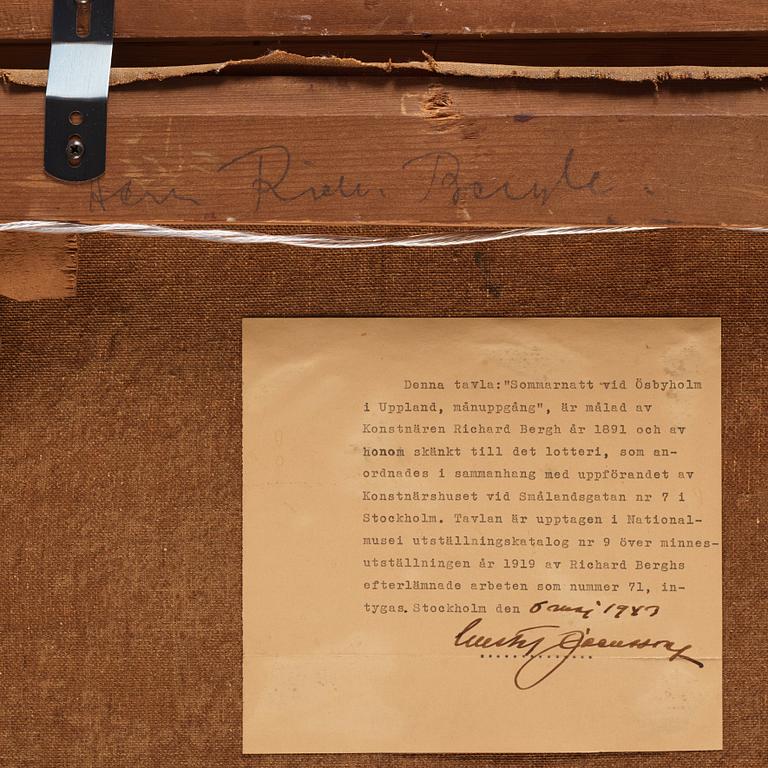 Denna tavla:"Sommarnatt vid Ösbyholm
i Uppland, månuppgång", är målad av
Konstnären Richard Bergh år 1891 och av
honom skänkt till det lotteri, som an-
ordnades i sammanhang med uppförandet av
Konstnärshuset vid Smålandsgatan nr 7 i
Stockholm. Tavlan är upptagen i National-
musei utställningskatalog nr 9 över minnes-
utställningen år 1919 av Richard Berghs
efterlämnade arbeten som nummer 71, in-
tygas. Stockholm den 6 maj 1943